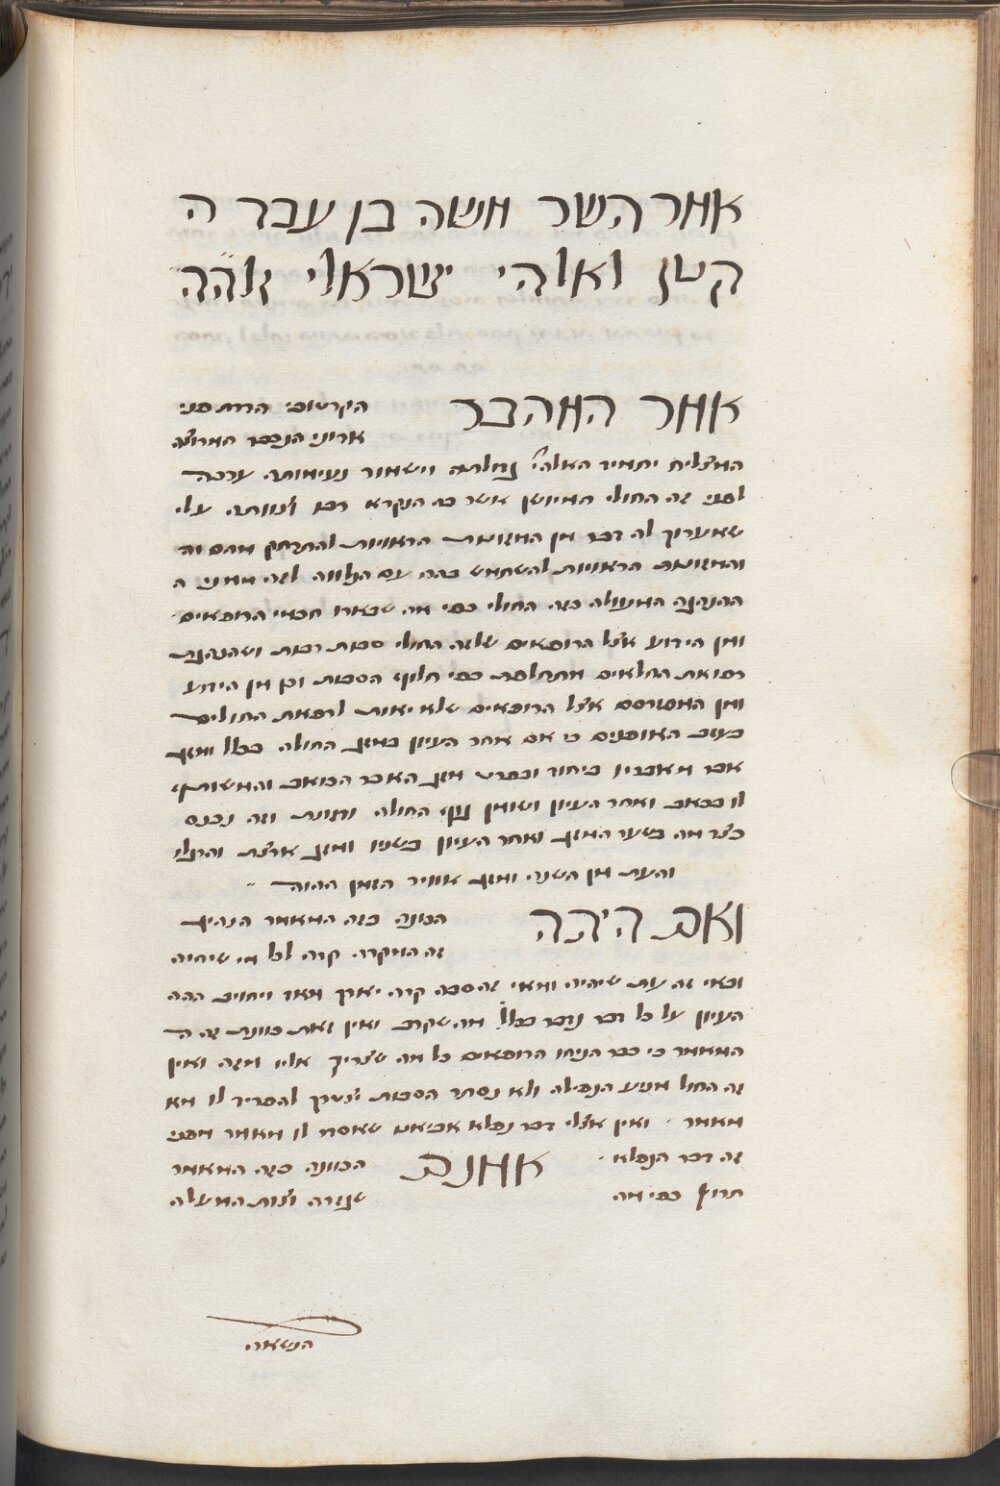 אמר השר משה בן עבד ה
קטן ואלהי ישראלי זלהה
אמר המחבר
הקדמוני
אדוני הנכבד המרוצה
המצליח יתמיד האלהי גדולתו וישמור נעימותו ערכה
לפני זה החולי המיושן אשר בה הנקרא רבו וצוותה עלי
שאערוך לה דבר מן המזונות הראויות להתרחק מהם וה
והמזונות הראויות להשתמש בהם עם הנלוה לזה ממני ה
ההנהגה המעולה בזה החולי כפי מה שבארו חכמי הרופאים
ומן הידוע אצל הרופאים שלזה החולי סבות רבות ושהנהגת
רפואת החלאים מתחלפת כפי חלוף הסבות וכן מן הידוע
ומן המפורסם אצל הרופאים שלא יאות לרפאת החולים
בעצב האופנים כי אם אחר העיון במזג החולה בכלל ומזג
אבר מאבריו ביחוד ובפרט מזג האבר הכואב והמשותף
לו בכאב ואחר העיון ושומן גוף החולה ורזונו וזה נכנס
כצד מה בשער המזג ואחר העיון בשניו ומזג ארצו והרגלו
והעת מן השנה ומזג אויר הזמן ההוה
ואם היתה
הכונה בזה המאמר הנהיגך
זה המקרה קרה לכל מי שיהיה
ובאי זה עת שיהיה ומאי זה סבה קרה יארך מאד ויחויב הזה
העיון על כל דבר נזכר בכלל מה שקדם ואין זאת כוונת זה ה
המאמר כי כבר הניחו הרופאים כל מה שצריך אליו מזה ואין
זה החולי מנוע הנפילה ולא נסתר הסבות יצטרך להסדיר לו מא
מאמר ואין אצלי דבר נפלא אביאנו שאסדר לו מאמר מפני
זה דבר הנפלא
אמנם
הכוונה בזה המאמר
תהיה כפי מה
שגזרה וצות המעלה
הנשאה